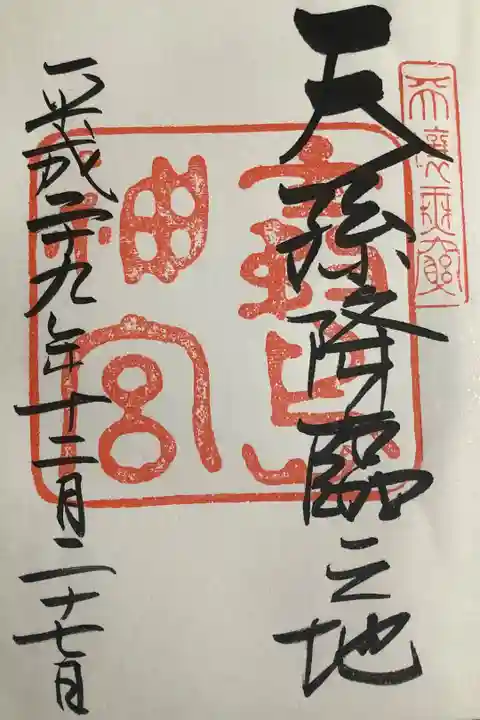 天壤無窮
天孫降臨之地
霧島
神宮
平成二十九年十二月二十七日